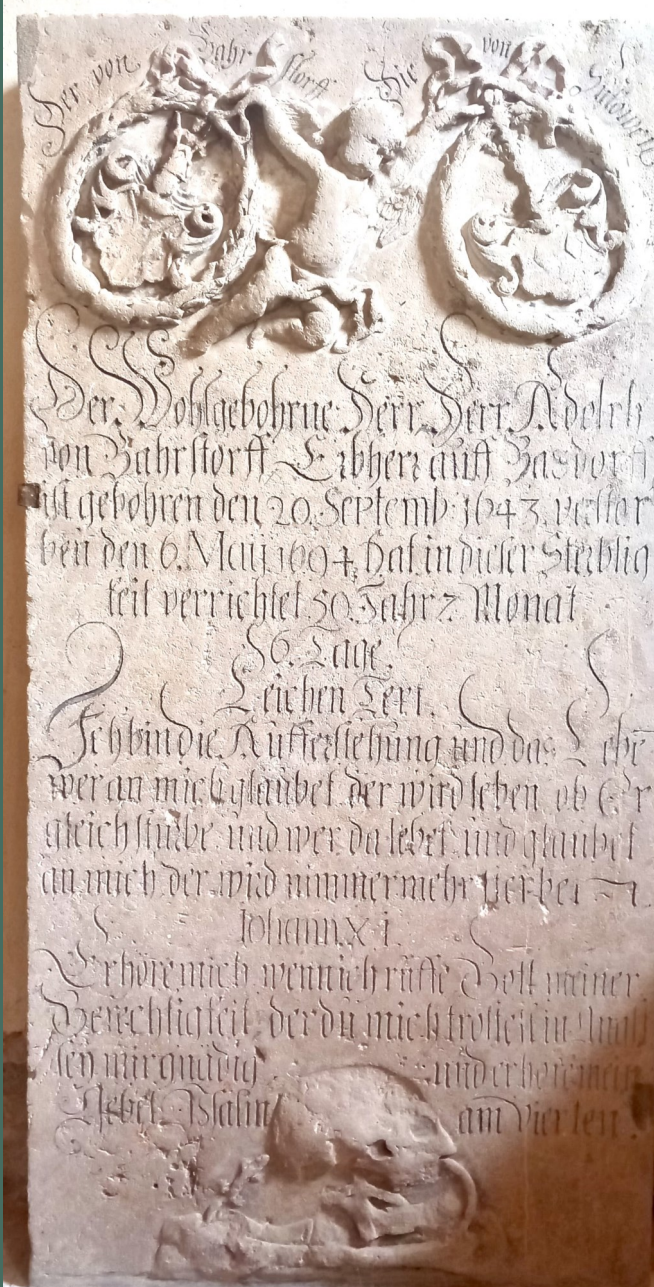 Der von Zahrstorff Die von Bülowen
Der Wohlgebohrne Herr Herr Adolph
von Zahrstorff Erbherr auff Basdorff
ist gebohren den 20. Septemb: 1643. verstor
ben den 6. Maij 1694, hat in dieser Sterblig
keit verrichtet 50. Jahr 7. Monat
16. Tage.
Leichen Text.
Ich bin die Aufferstehung und das Lebē
wer an mich glaubet der wird leben ob Er
gleich stürbe und wer da lebet und glaubet
an mich der wird nimmermehr
Iohann. XI.
Erhöre mich wenn ich ruffe Gott meiner
Gerechtigkeit der du mich tröstest in Angst
sey mir gnädig und erhöre mein
Gebet. Psalm am vierten.